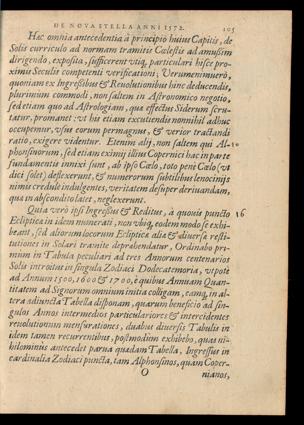 DE NOVA STELLA ANNI 1572. 105
Hæc omnia antecedentia à principio huius Capitis, de
Solis curriculo ad normam tramitis Cœlestis ad amussim
dirigendo, exposita, sufficerent vtiq; particulari hisce pro-
ximis Seculis competenti verificationi, Verumenimuerò,
quoniam ex Ingressibus & Reuolutionibus hinc deducendis,
plurimum commodi, non saltem in Astronomico negotio,
sed etiam quo ad Astrologiam, quæ effectus Siderum scru-
tatur, promanet: vt his etiam excutiendis nonnihil adhuc
occupemur, vsus eorum permagnus, & verior tractandi
ratio, exigere videntur. Etenim alij, non saltem qui Al-
phonsinorum, sed etiam eximij illius Copernici hac in parte
fundamentis innixi sunt, ab ipso Cœlo, toto penè Cœlo (vt
dici solet) deflexerunt, & numerorum subtilibus lenocinijs
nimis credulè indulgentes, veritatem desuper deriuandam,
quia in abscondito latet, neglexerunt.
Quia verò ipsi Ingressus & Reditus, à quouis puncto
Eclipticæ itidem numerati, non vbiq; eodem modo se exhi-
beant, sed aliorum locorum Ecliptica alia & diuersa resti-
tutiones in Solari tramite deprehendatur, Ordinabo pri-
mum in Tabula peculiari ad tres Annorum centenarios
Solis introitus in singula Zodiaci Dodecatemoria, vtpote
ad Annum 1500, 1600 & 1700, è quibus Annuam Quan-
titatem ad Signorum omnium initia colligam, eamq; in al-
tera adiuncta Tabella disponam, quarum beneficio ad sin-
gulos Annos intermedios particulariores & intercidentes
reuolutionum mensurationes, duabus diuersis Tabulis in
idem tamen recurrentibus, postmodum exhibebo, quas ni-
hilominus antecedet parua quædam Tabella, Ingressus in
cardinalia Zodiaci puncta, tam Alphonsinos, quam Coper-
O nicanos,